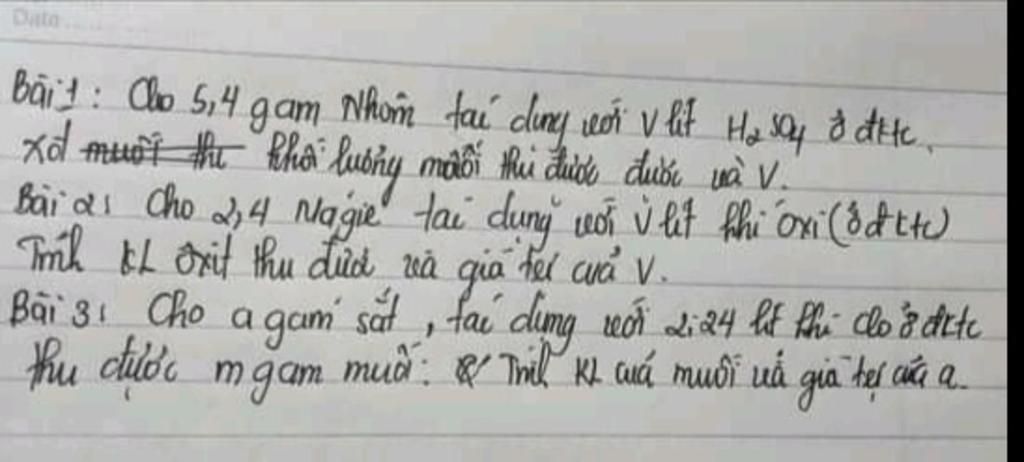 Date
Bài 1: Cho 5,4 gam Nhôm tác dụng với V lít H2SO4 ở đktc.
Xđ muối thu khối lượng muối thu được được và V.
Bài 2: Cho 2,4 Magie tác dụng với V lít khí oxi (ở đktc)
Tính KL oxit thu được và giá trị của V.
Bài 3: Cho a gam sắt, tác dụng với 2,24 lít khí clo ở đktc
thu được m gam muối: Tính KL của muối và giá trị của a.